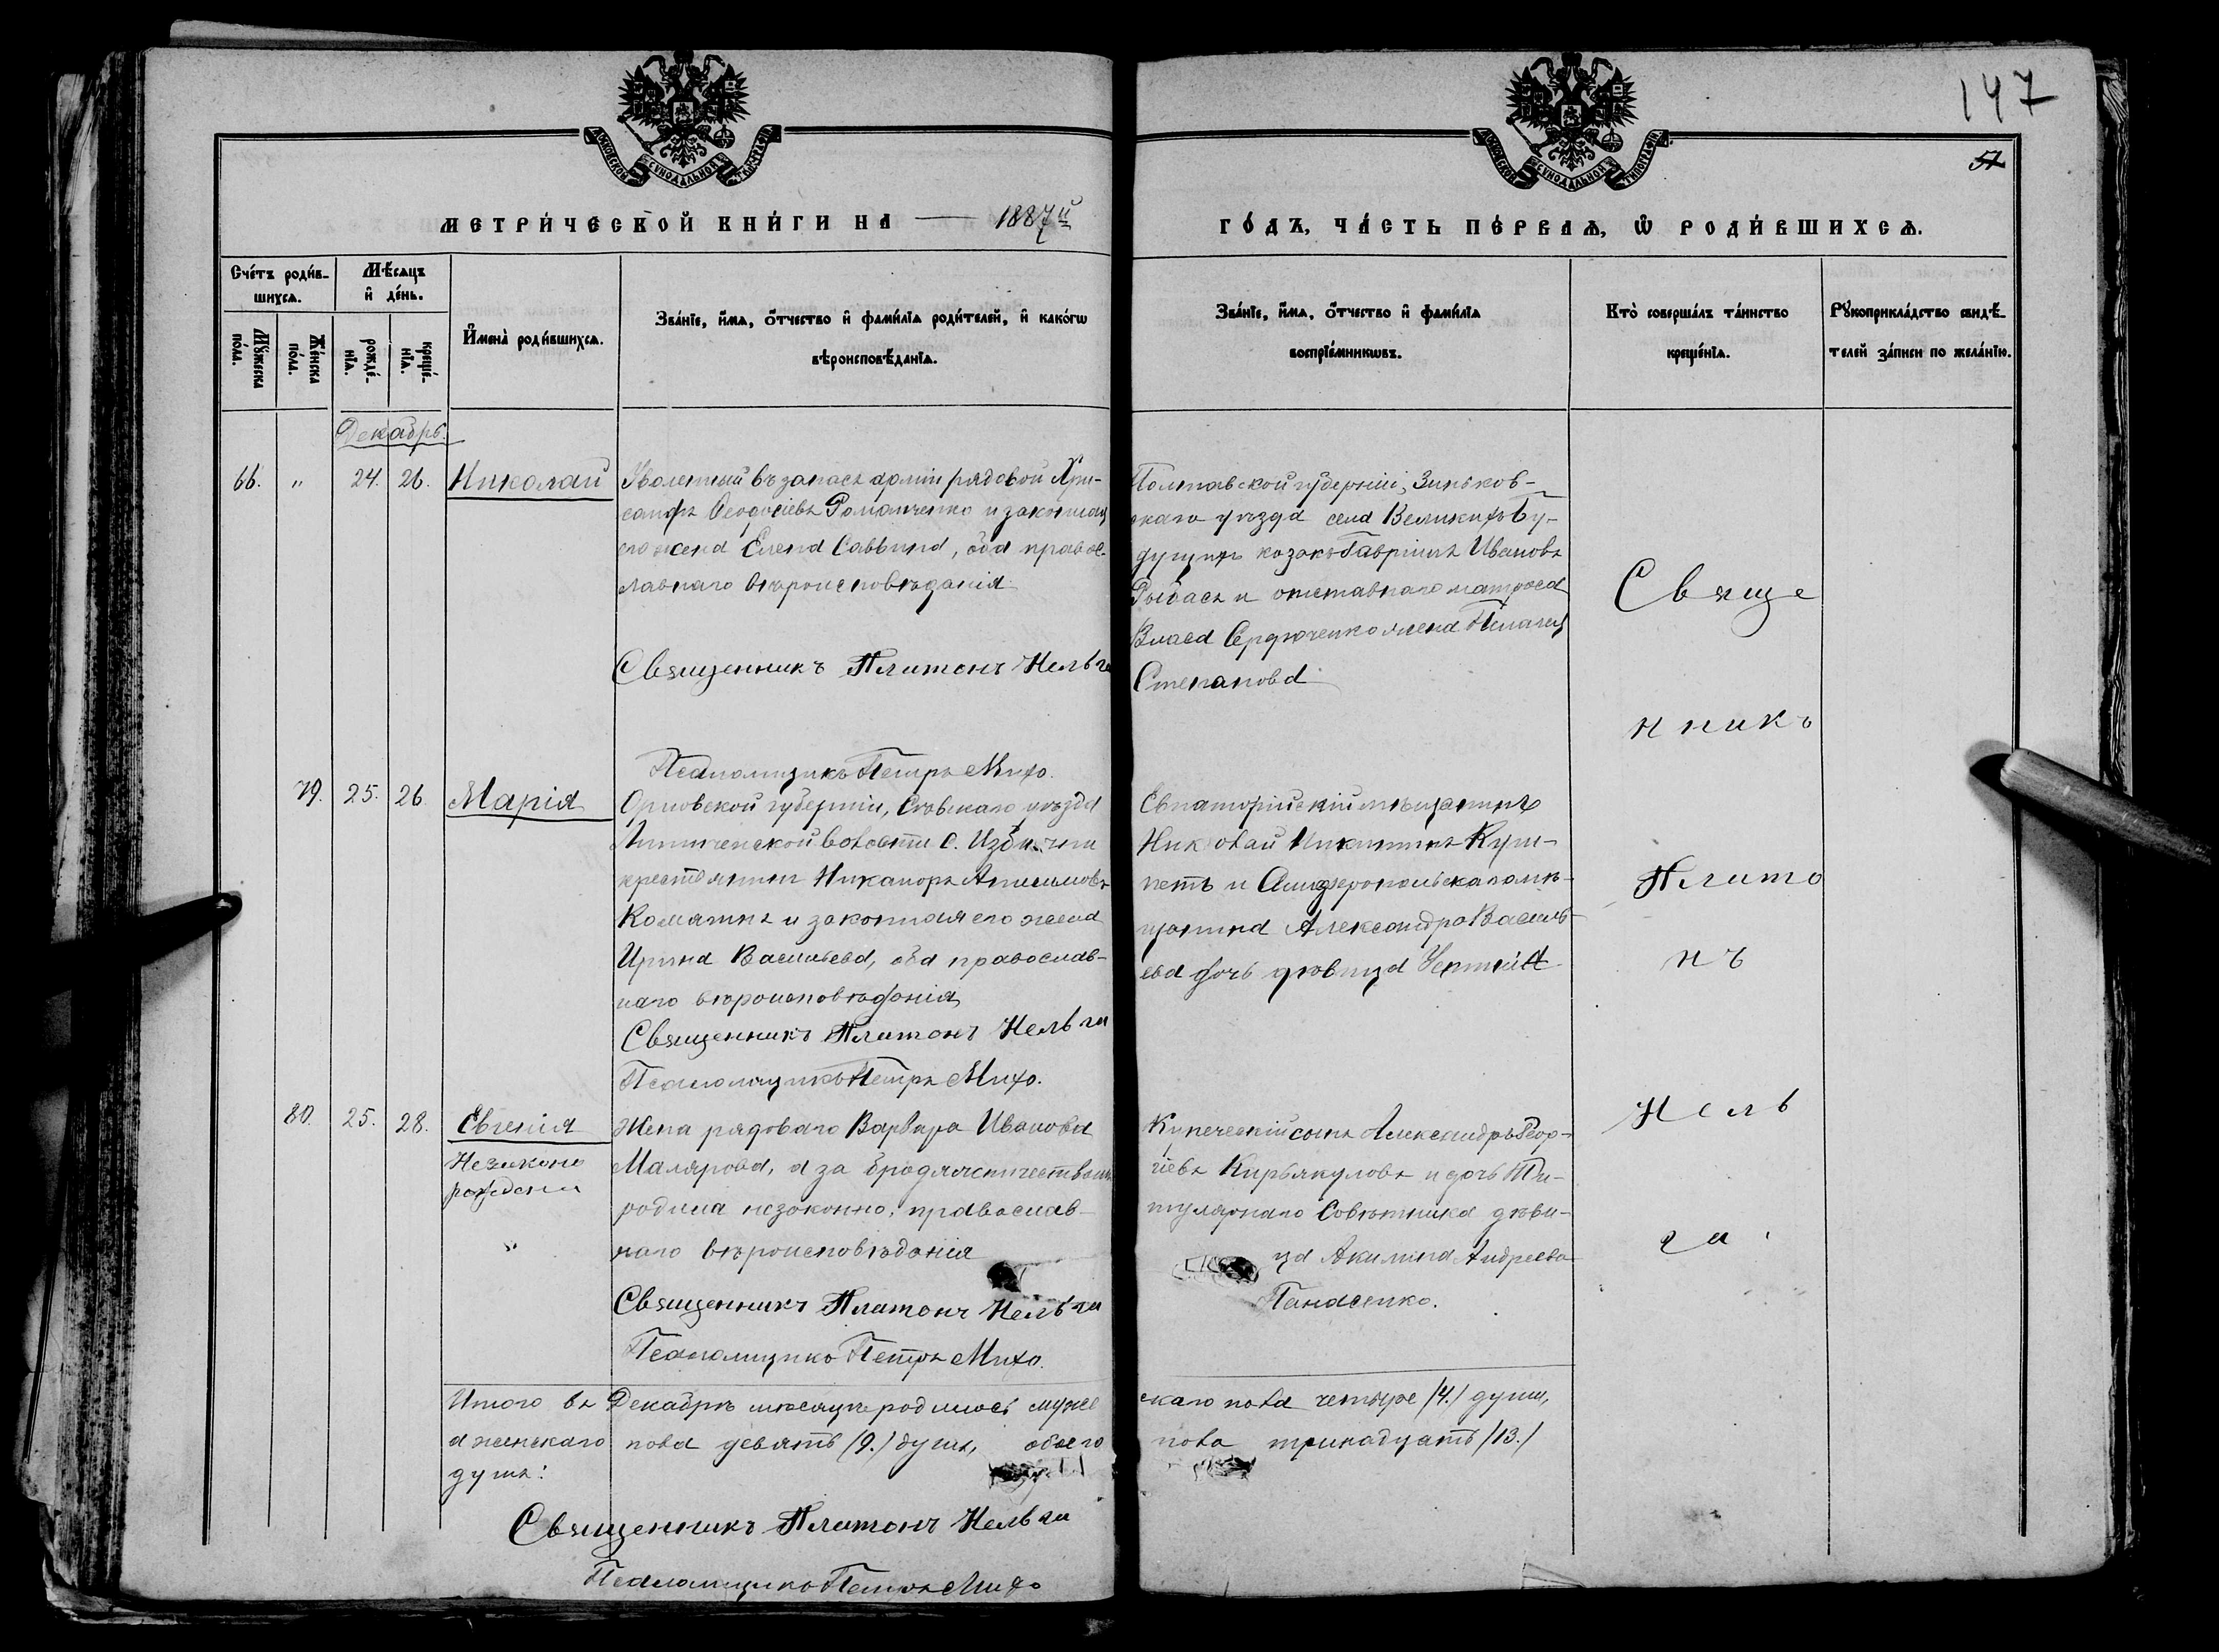 147
51
МОСКОВСКОЙ СѴНОДАЛЬНОЙ ТИПОГРАФІИ
МОСКОВСКОЙ СѴНОДАЛЬНОЙ ТИПОГРАФІИ
МЕТРИ́ЧЕСКОЙ КНИ́ГИ НА 1887й
ГО́ДЪ, ЧА́СТЬ ПЕ́РВАѦ, Ѡ҆ РОДИ́ВШИХСѦ.
Сче́тъ роди́в-
шихсѧ.
Мꙋ́жеска по́ла.
Же́нска по́ла.
Мѣ́сѧцъ
и҆ де́нь.
рожде́-
нїѧ.
креще́-
нїѧ.
И҆мена̀ роди́вшихсѧ.
Зва́нїе, и҆́мѧ, ѻ҆́тчество и҆ фами́лїѧ роди́телей, и҆ како́гѡ
вѣроисповѣ́данїѧ.
Зва́нїе, и҆́мѧ, ѻ҆́тчество и҆ фами́лїѧ
воспрїе́мникѡвъ.
Кто̀ соверша́лъ та́инство
креще́нїѧ.
Рꙋкоприкла́дство свидѣ́-
телей за́писи по жела́нїю.
Декабрь.
66. " 24. 26. Николай
Уволенный въ запасъ арміи рядовой Хри-
санфъ Ѳеодосіевъ Романченко и законная
его жена Елена Саввина, оба правос-
лавнаго вѣроисповѣданія
Священникъ Платонъ Нельга
Псаломщикъ Петръ Михо.
Полтавской губерніи, Зиньков-
скаго уѣзда села Великихъ Бу-
дущихъ козакъ Гавріилъ Ивановъ
Рыбасъ и отставнаго матроса
Власа Сердюченко жена Пелагея
Степанова
79. 25. 26. Марія
Орловской губерніи, Сѣвскаго уѣзда
волости с.
крестьянинъ Никаноръ Анисимовъ
и законная его жена
Ирина Васильева, оба православ-
наго вѣроисповѣданія
Священникъ Платонъ Нельга
Псаломщикъ Петръ Михо.
Евпаторійскій мѣщанинъ
Николай Никитинъ
и мѣ-
щанина Александра Василь-
ева дочь дѣвица
80. 25. 28. Евгенія
Незаконо
рождена
Жена рядоваго Варвара Иванова
Малярова, а за бродяжничествомъ
родила незаконно, православ-
наго вѣроисповѣданія
Священникъ Платонъ Нельга
Псаломщикъ Петръ Михо.
Купеческій сынъ Александръ Геор-
гіевъ Кирьякуловъ и дочь Ти-
тулярнаго Совѣтника дѣви-
ца Акилина Андреева
Панасенко.
Свяще
нникъ
Плато
нъ
Нель
га.
Итого въ Декабрѣ мѣсяцѣ родилось муже
скаго пола четыре /4./ души,
а женскаго пола девять /9./ душъ, обоего
пола тринадцать /13./
душъ:
Священникъ Платонъ Нельга
Псаломщикъ Петръ Михо